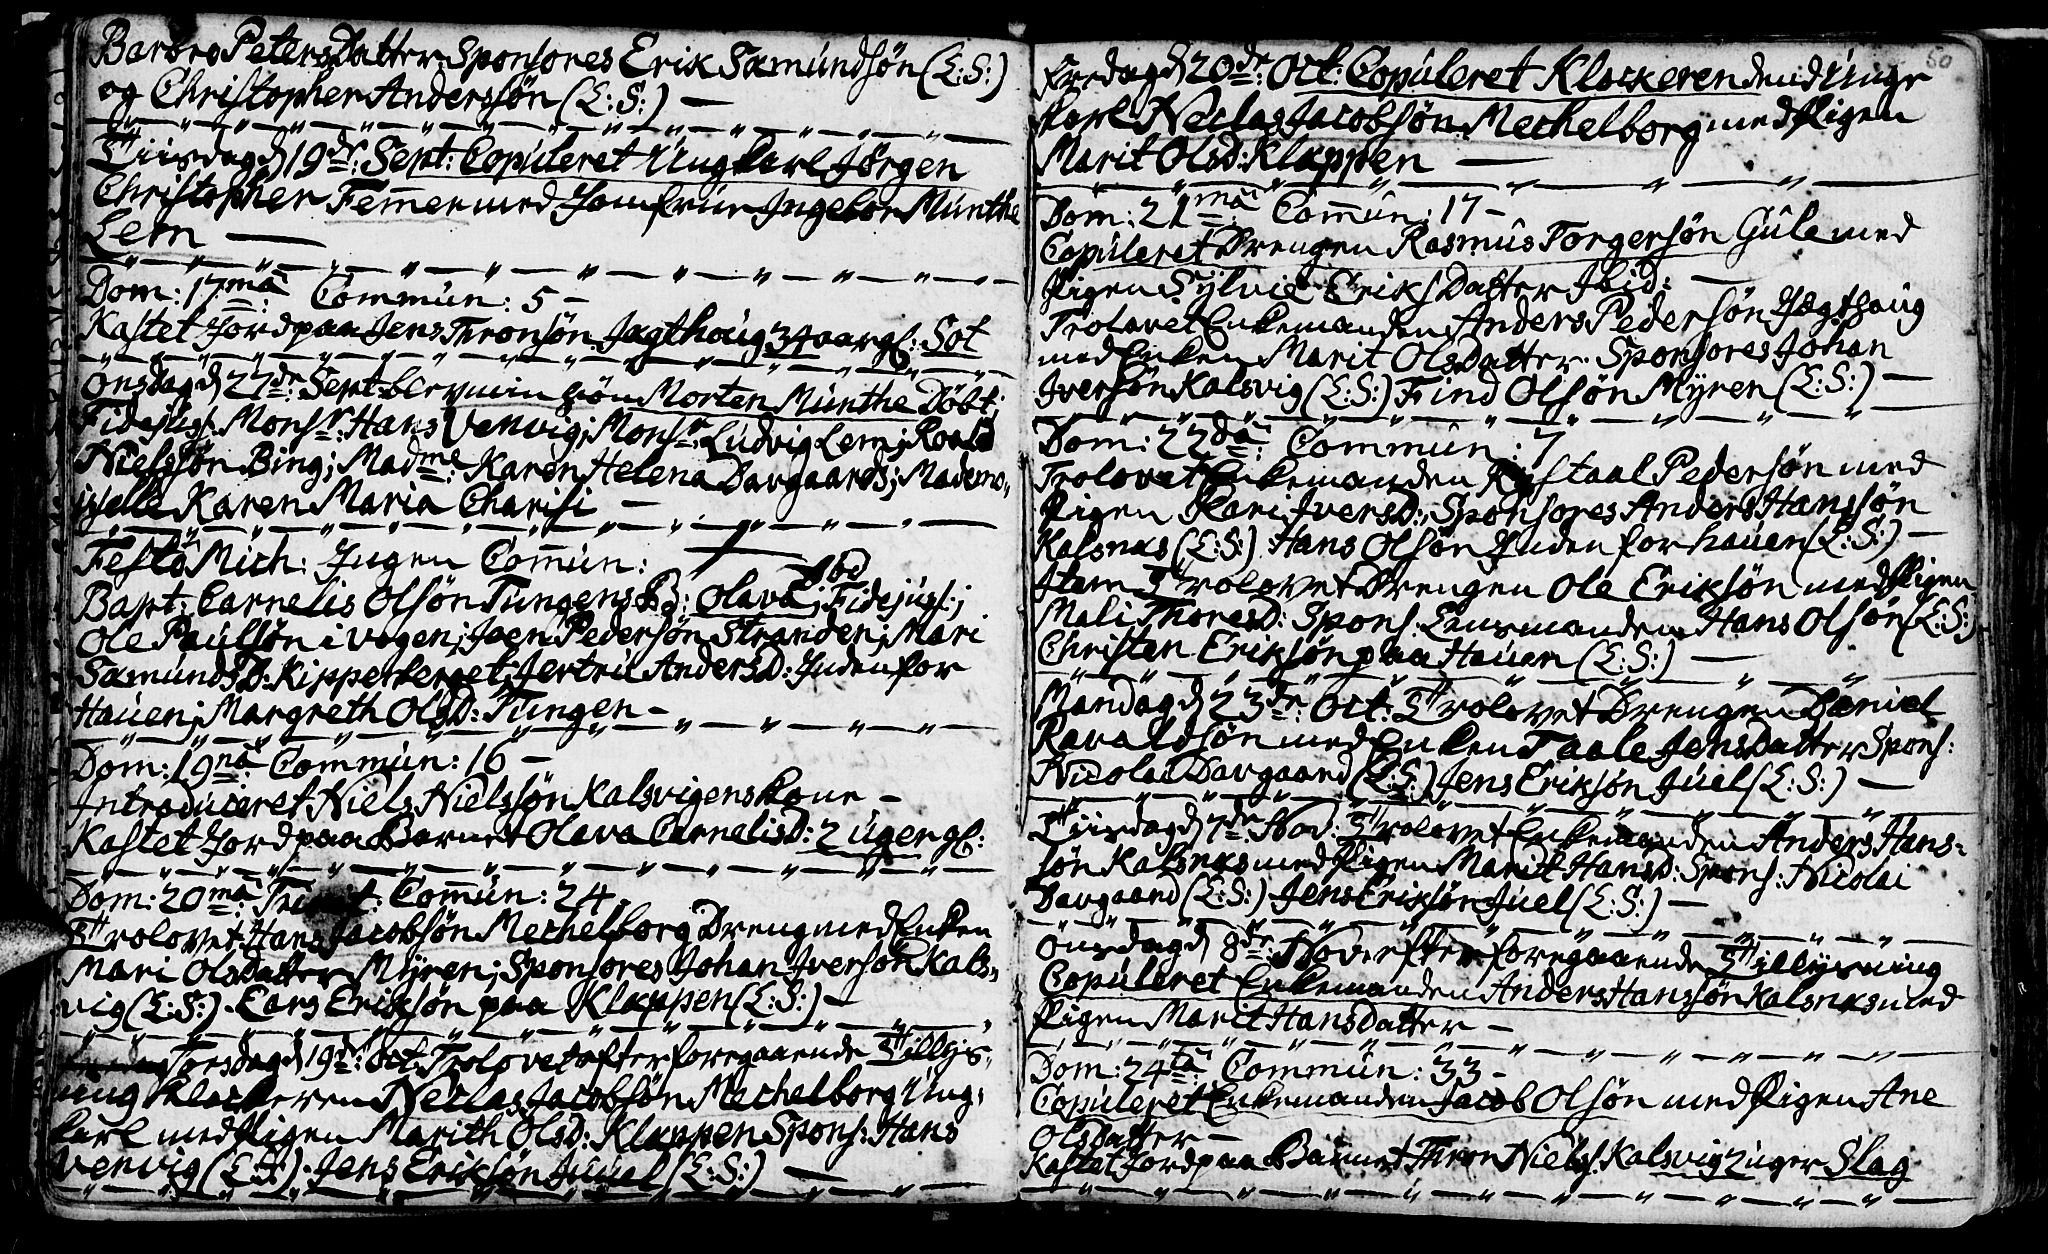 Barbro PetersDatter Sponsores Erik Sæmundsøn (L:S:)
og Christopher Anderssøn (L:S:) —
Tiirsdag d 19de: Sept: Copuleret Ungkarl Jørgen
Christopher Femmer med Jomfrue Ingebor Munthe
Lem —
Dom: 17ma: Commun: 5 –
Kastet Jord paa Jens Thronsøn Jagthoug 34 aar gl: Sot
Onsdag d 27de Sept: blev min søn Morten Munthe Døbt;
Fidejuss: Monsr: Hans Venvig; Monsr: Ludvig Lem; Roald
Nielssøn Bing; Madme: Karen Helena Davgaards;Ademo„
iselle Karen Maria Charisi —
Festo Mich: Ingen Commun:
Bapt: Cornelis Olsøn Tungens B: Olava; Fidejuss:;
Ole Paulsøn i vogen; Joen Pedersøn Stranden; Mari
SæmundsD: Kipperberget; Jertru AndersD: Inden for
Hauen; Margreth OlsD: Tungen –
Dom: 19na: Commun: 16 –
Introduceret Niels Nielssøn Kalsvigens kone –
Kastet Jord paa Barnet Olava CornelisD: 2 uger gl:
Dom: 20ma: Commun: 24
Trolovet Hans Jacobsøn Mechelborg Dreng med Enken
Mari OlsDatter Myren; Sponsores Johan Iversøn Kals„
vig (L:S:). Lars Eriksøn paa Klappen (L:S:) –
Torsdag d 19de: Oct: Trolovet efter foregaaende Tillys„
ning Klockeren Niclas Jacobsøn Mechelborg Ung:
karl med Pigen Marith OlsD: Klappen Spons: Hans
Venvig (L:S:). Jens Eriksøn Juuel (L:S:) —
50
Fredag d 20de: Oct: Copuleret Klockeren den Unge
karl Niclas Jacobsøn Mechelborg med Pigen
Marit OlsD: Klappen —
Dom: 21ma: Commun: 17 –
Copuleret Drengen Rasmus Torgersøn Gule med
Pigen Sylvie EriksDatter Ibid: —
Trolovet Enkemanden Anders Pedersøn Jægthoug
med Enken Marit OlsDatter. Sponsores Johan
Iversøn Kalsvig (L:S:) Find Olsøn Myren (L:S:) —
Dom: 22da: Commun: 7
Trolovet Enkemanden Pedersøn med
Pigen Kari IversD: Sponsores Anders Hanssøn
Kalsnæs (L:S:). Hans Olsøn Inden for hauen (L:S:) –
Item Trolovet Drengen Ole Eriksøn med Pigen
Mali ThoresD: Spons: Lensmanden Hans Olsøn (L:S:)
Christen Eriksøn paa Hauen (L:S:) —
Mandag d 23de: Oct: Trolovet Drengen Daniel
Ravaldsøn med Enken Taale JensDatter Spons:
Nicolai Davgaard (L:S:) Jens Eriksøn Juel (L:S:) —
Tiirsdag d 7de Nov: Trolovet Enkemanden Anders Hans=
søn Kalsnæs med Pigen Marit HansD: Spons: Nicolai
Davgaard (L:S:) Jens Eriksøn Juel (L:S:) —
Onsdag d 8de: Nov efter foregaaende Tillysning
Copuleret Enkemanden Anders Hanssøn Kalsnæs med
Pigen Marit HansDatter –
Dom: 24ta: Commun: 33 –
Copuleret Enkemanden Jacob Olsøn med Pigen Ane
OlsDatter –
Kastet Jord paa Barnet Thron Niels: Kalsvig 2 uger Slag